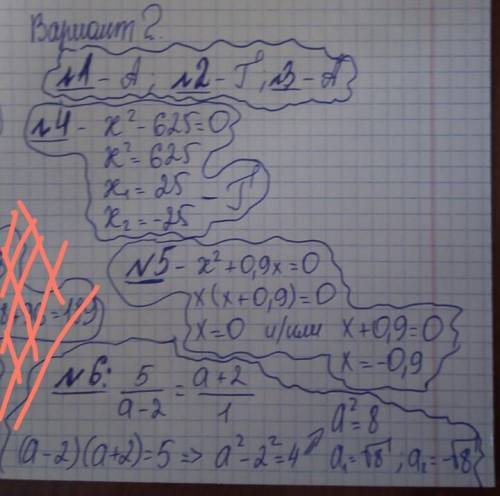 Вариант 2.
№1 - А; №2 - Г, №3 - А
№4 - x² - 625 = 0
x² = 625
x₁ = 25 - Г
x₂ = -25
№5 - x² + 0,9x = 0
x(x + 0,9) = 0
x = 0 и/или x + 0,9 = 0
x = -0,9
№6: 5/(a-2) = (a+2)/1
(a-2)(a+2) = 5 => a² - 2² = 4
a² = 8
a₁ = √8; a₂ = -√8